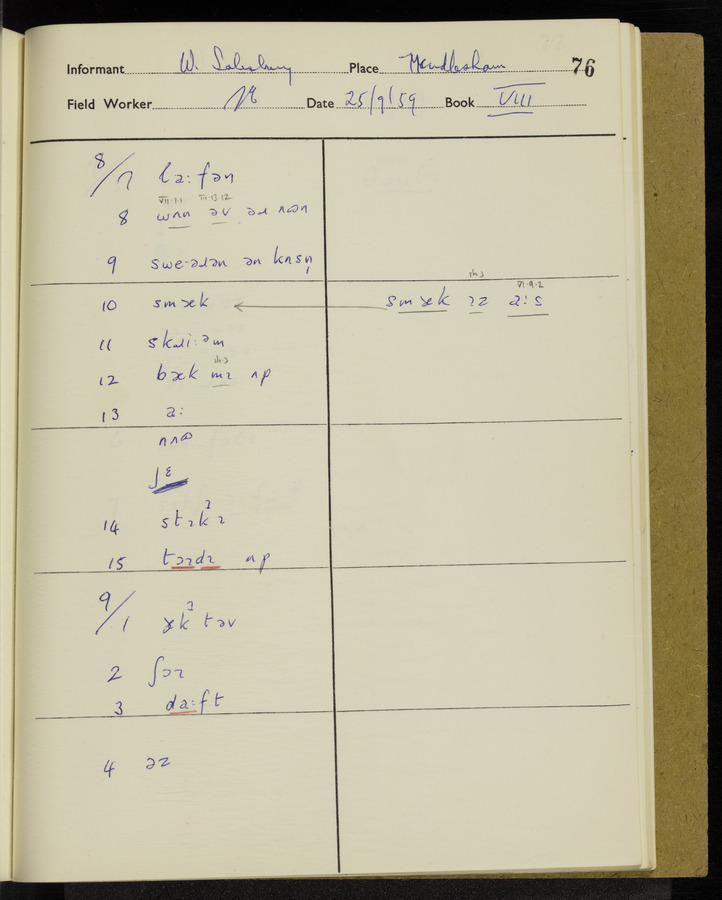 Informant W. Salesbury Place Mendlesham 76
Field Worker Date 25/9/59 Book VIII
8/7 la:fən
VII.1.1 VII.13.12
8 wʌn əv əɹ
9 swe·əɹən ən
10 smæk
smæk ɪz a:s
VI.9.2
11 skɹi:əm
12 bæk mɪ ʌp
13 a:
nʌʊ
ʃɛ
14 stɪkʔɪ
15 tɔɪdɪ ʌp
9/1 ækʔ təv
2 ʃɔɪ
3 da:ft
4 əz